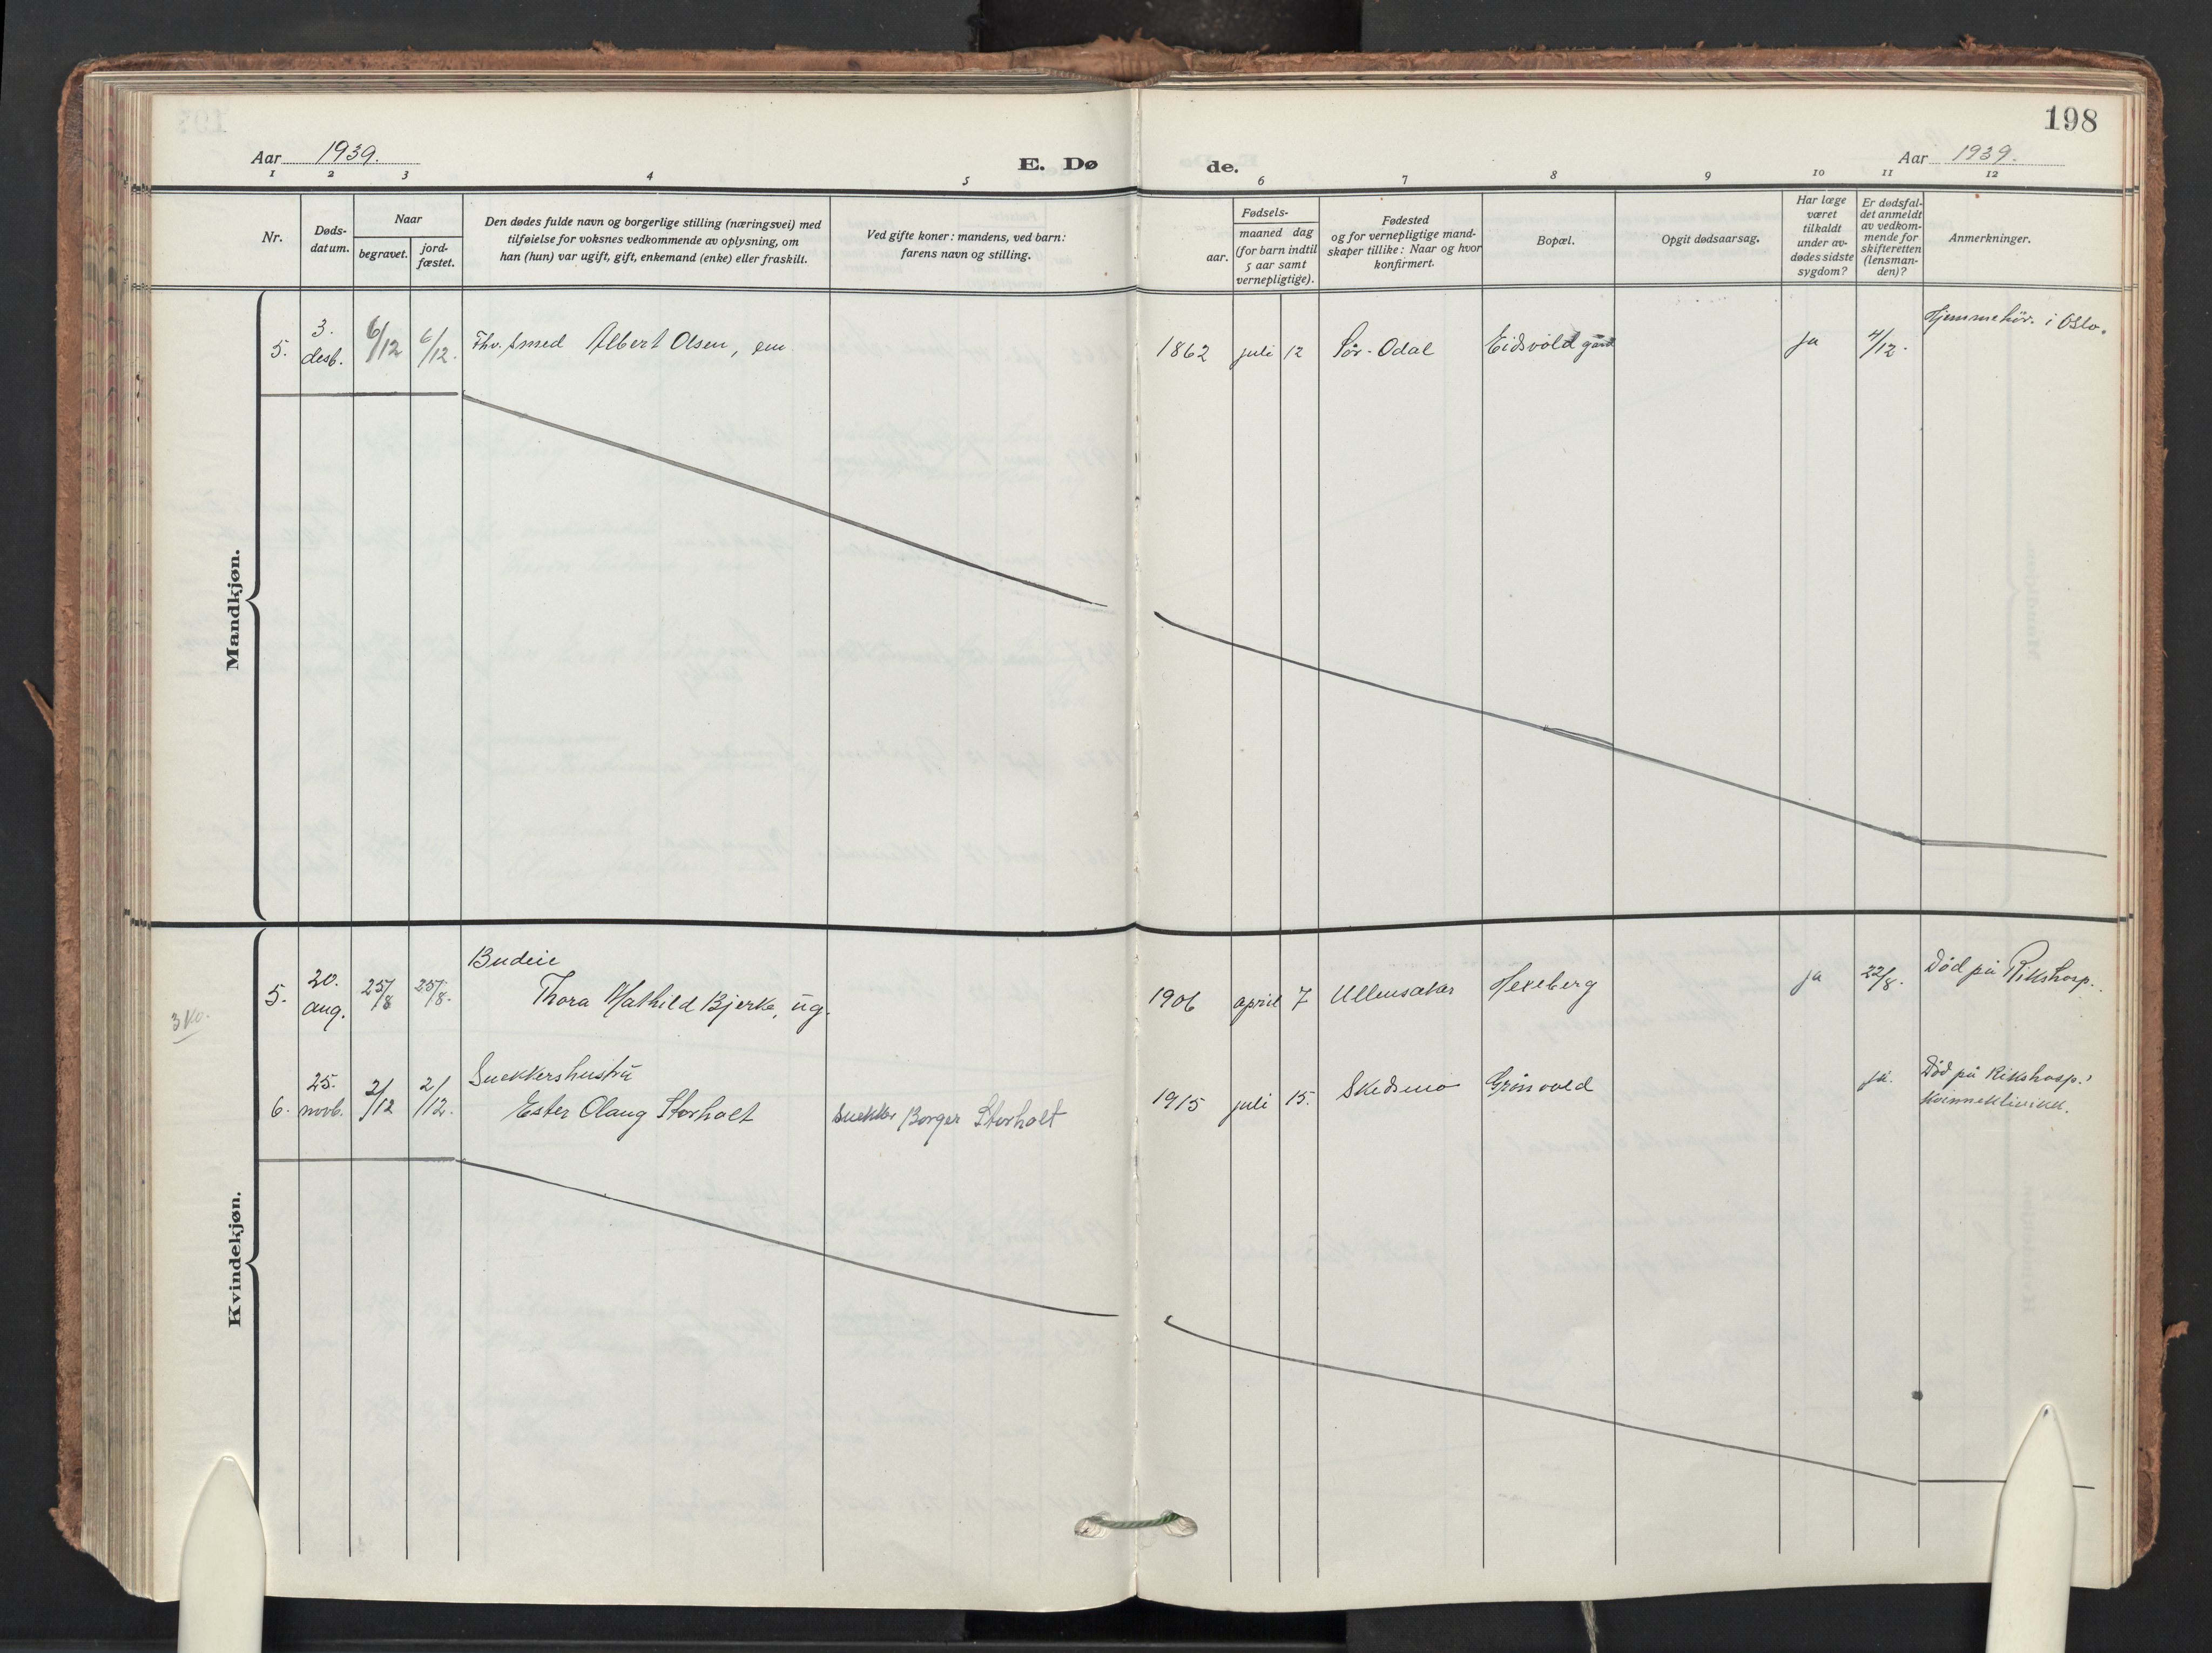 198
Aar 1939.
E. Dø
de.
Aar 1939.
1 2 3 4 5 6 7 8 9 10 11 12
Nr.
Døds-
datum.
Naar
begravet.
jord-
fæstet.
Den dødes fulde navn og borgerlige stilling (næringsvei) med
tilføielse for voksnes vedkommende av oplysning, om
han (hun) var ugift, gift, enkemand (enke) eller fraskilt.
Ved gifte koner: mandens, ved barn:
farens navn og stilling.
Fødsels-
aar.
maaned dag
(for barn indtil
5 aar samt
vernepligtige).
Fødested
og for vernepligtige mand-
skaper tillike: Naar og hvor
konfirmert.
Bopæl.
Opgit dødsaarsag.
Har læge
været
tilkaldt
under av-
dødes sidste
sygdom?
Er dødsfal-
det anmeldt
av vedkom-
mende for
skifteretten
(lensman-
den)?
Anmerkninger.
Mandkjøn.
5.
3.
desb.
6/12
6/12.
Fhv. smed Albert Olsen, em.
1862 juli 12 Sør-Odal Eidsvold gård ja 4/12.
Hjemmehör. i Oslo.
Kvindekjøn.
3 Ko.
5.
20.
aug.
25/8
25/8.
Budeie
Thora Mathild Bjerke, ug.
1906 april 7 Ullensaker Hexeberg ja 22/8.
Död på Rikshosp.
6.
25.
novb.
2/12
2/12.
Snekkershustru
Ester Olaug Storholt
snekker Borger Storholt
1915 juli 15. Skedsmo Grönvold ja.
Död på Rikshosp.'
kvinneklinikk.